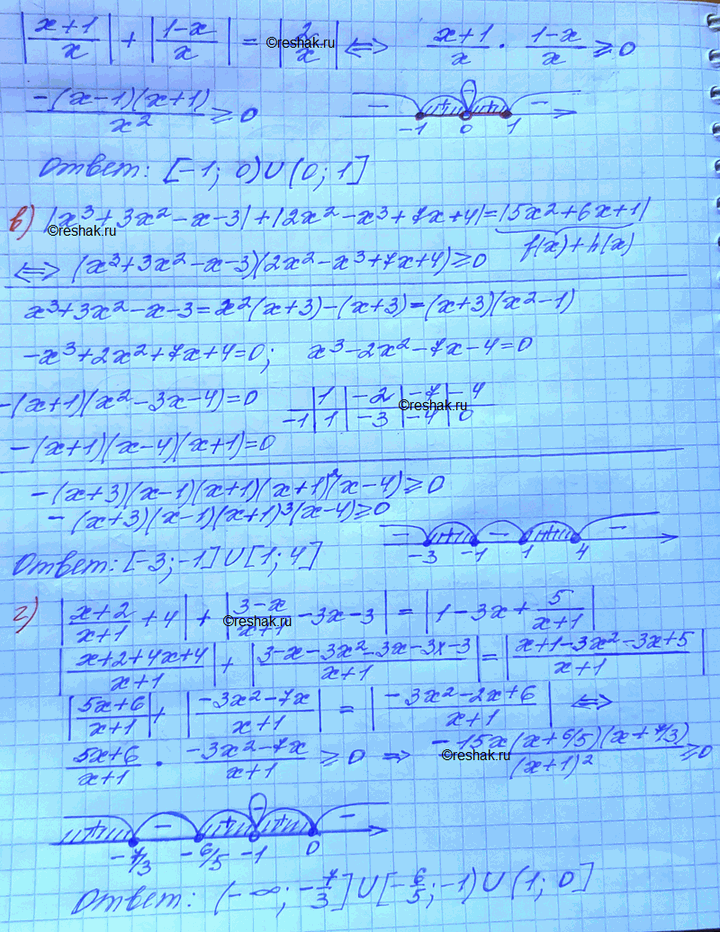 |x+1/x| + |1-x/x| = |2/x| ⟺ x+1/x · 1-x/x ≥ 0
©reshak.ru
-(x-1)(x+1)/x² ≥ 0
- + + -
-1 0 1
Ответ: [-1; 0) ∪ (0; 1]
в) |x³+3x²-x-3| + |2x²-x³+7x+4| = |5x²+6x+1|
©reshak.ru
f(x)+h(x)
⟺ (x³+3x²-x-3)(2x²-x³+7x+4) ≥ 0
x³+3x²-x-3 = x²(x+3)-(x+3) = (x+3)(x²-1)
-x³+2x²+7x+4=0; x³-2x²-7x-4=0
-(x+1)(x²-3x-4)=0
1 -2 -7 -4
©reshak.ru
-1 1 -3 -4 0
-(x+1)(x-4)(x+1)=0
-(x+3)(x-1)(x+1)(x+1)²(x-4) ≥ 0
-(x+3)(x-1)(x+1)³(x-4) ≥ 0
- + - + -
-3 -1 1 4
Ответ: [-3; -1] ∪ [1; 4]
г) |x+2/x+1 + 4| + |3-x/x+1 - 3x - 3| = |1 - 3x + 5/x+1|
©reshak.ru
|x+2+4x+4/x+1| + |3-x-3x²-3x-3x-3/x+1| = |x+1-3x²-3x+5/x+1|
|5x+6/x+1| + |-3x²-7x/x+1| = |-3x²-2x+6/x+1| ⟺
5x+6/x+1 · -3x²-7x/x+1 ≥ 0 ⇒ -15x(x+6/5)(x+7/3)/(x+1)² ≥ 0
©reshak.ru
+ - + - + -
-7/3 -6/5 -1 0
Ответ: (-∞; -7/3] ∪ [-6/5; -1) ∪ (1; 0]